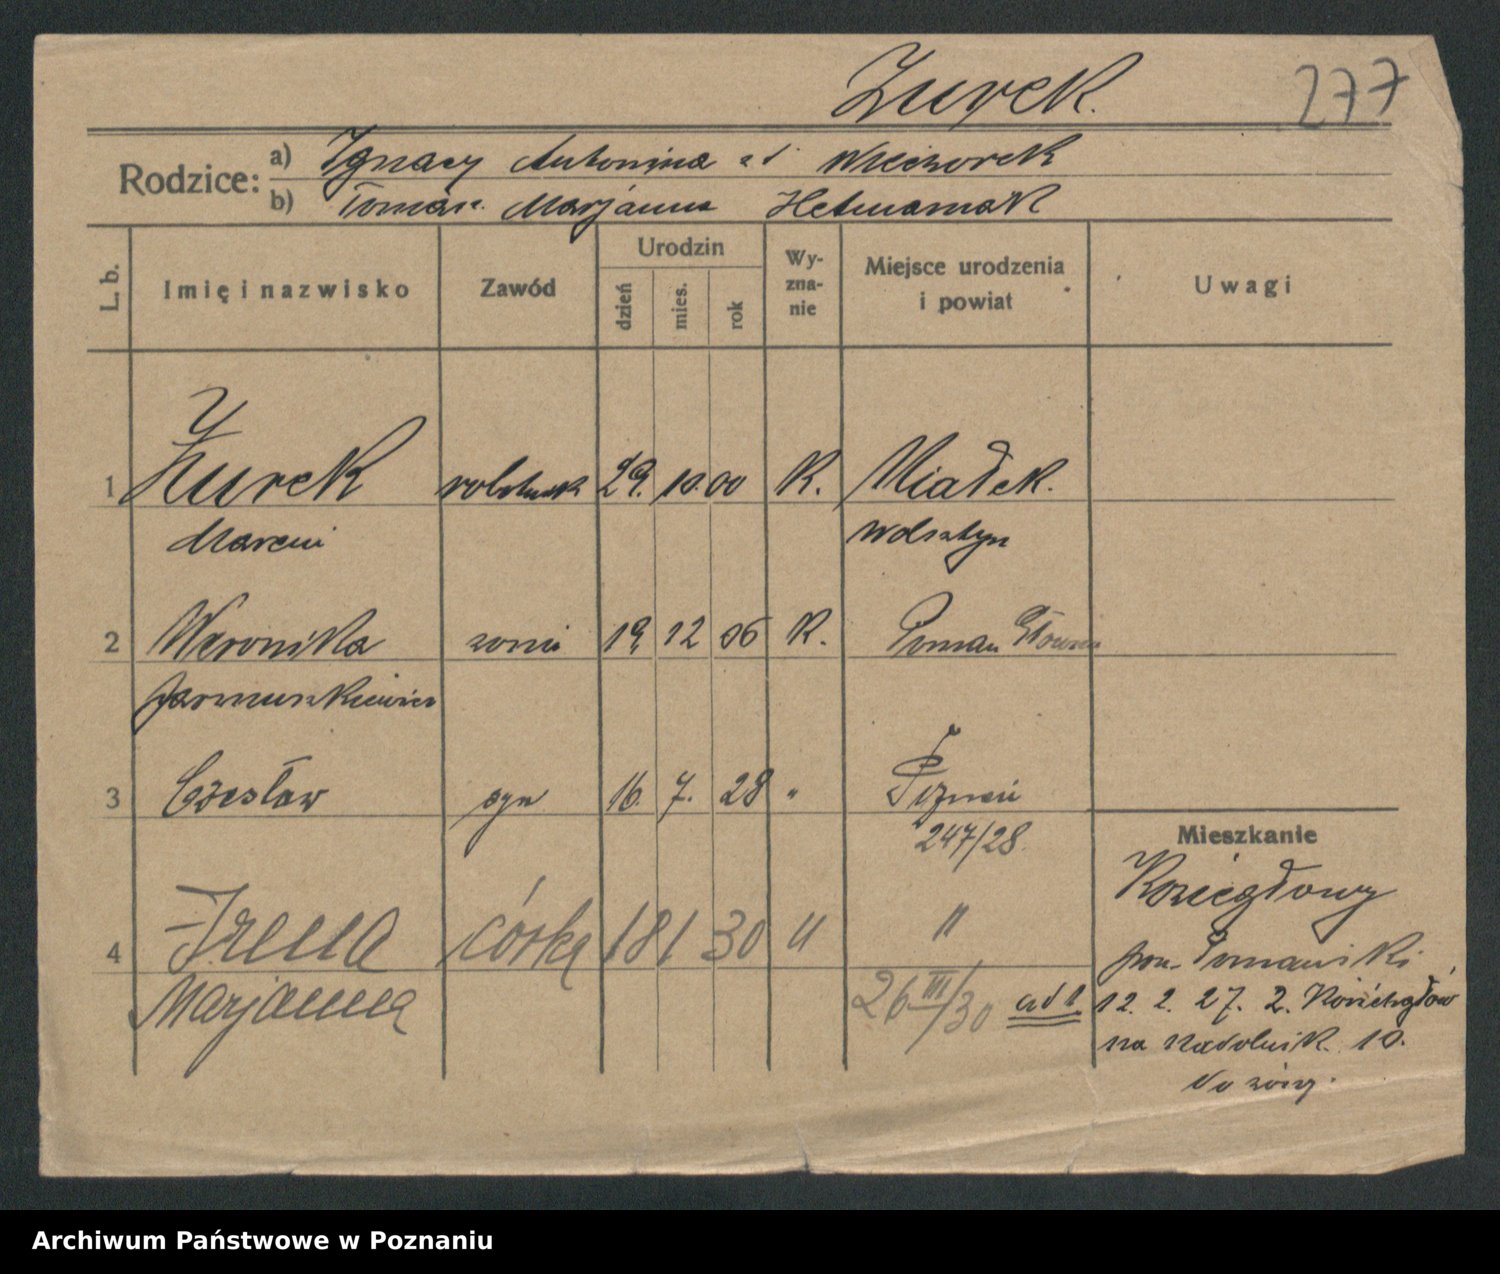 Żurek.
277
Rodzice:
a) Ignacy Antonina z d. Wieczorek
b) Tomasz. Marjanna Hetmaniak
L. b.
Imię i nazwisko
Zawód
Urodzin
dzień
mies.
rok
Wy-
zna-
nie
Miejsce urodzenia
i powiat
Uwagi
1 Żurek robotnik 29. 10. 00 K. Miałek.
Marcin Wolsztyn
2 Weronika żona 19 12 06 K. Poznań Główna
Jarmuszkiewicz
3 Czesław syn 16. 7. 28 " Poznań
247/28.
4 Irena córka 18 1 30 " "
Marjanna 26 III/30 ad 1
Mieszkanie
Koziegłowy
pow. Poznański
12. 2. 27. z Kozichgłów
na Nadolnik. 10.
do żony.